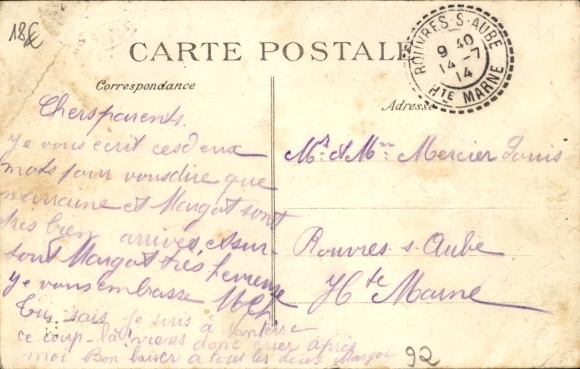 18€
CARTE POSTALE
ROUVRES-S-AUBE
9 40
14 -7
14
HTE MARNE
Correspondance
Adresse
Chers parents,
Je vous écrit ces deux
mots pour vous dire que
marraine et Margot sont
très bien arrivés, et sur-
tout Margot très heureuse
Je vous embrasse
Tu sais je suis à Nanterre
ce coup-là viens donc crier après
moi Bon baiser à tous les deux Margot
Mr et Mme Mercier Louis
Rouvres s. Aube
Hte Marne
92